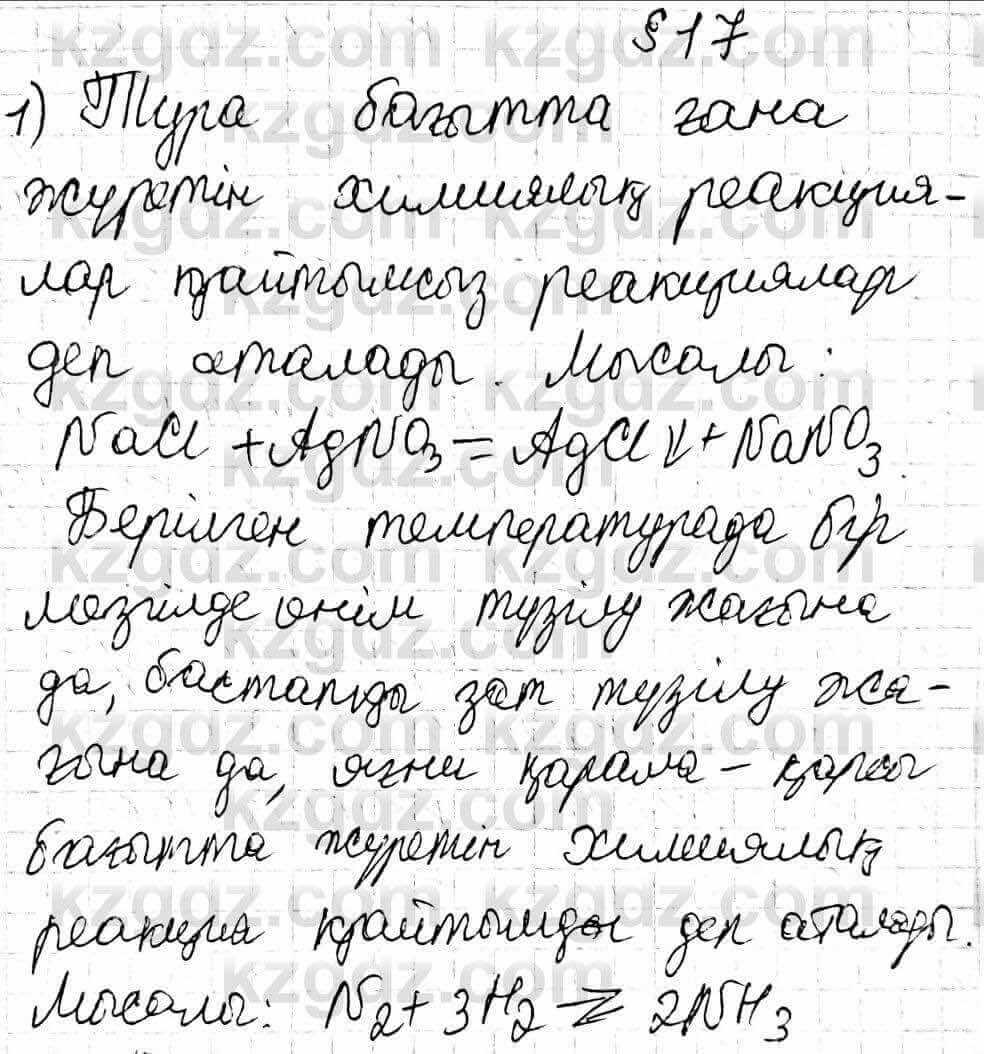 § 17
1) Тура бағытта ғана
жүретін химиялық реакция-
лар қайтымсыз реакциялар
деп аталады. Мысалы:
NaCl + AgNO₃ = AgCl ↓ + NaNO₃
Берілген температурада бір
мезгілде өнім түзілу жағына
да, бастапқы зат түзілу жа-
ғына да, яғни қарама-қарсы
бағытта жүретін химиялық
реакция қайтымды деп аталады.
Мысалы: N₂ + 3H₂ ⇄ 2NH₃
kzgdz.com